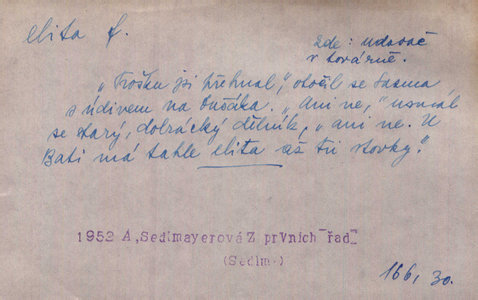 elita f.
zde: udavač
v továrně.
"Trošku jsi přehnal," otočil se
s údivem na "ani ne," usmál
se starý, dobrácký dělník, "ani ne. U
Bati má tahle elita až tři stovky."
1952 A,Sedlmayerová Z prVních řad"
(Sedlm.)
166, 30.